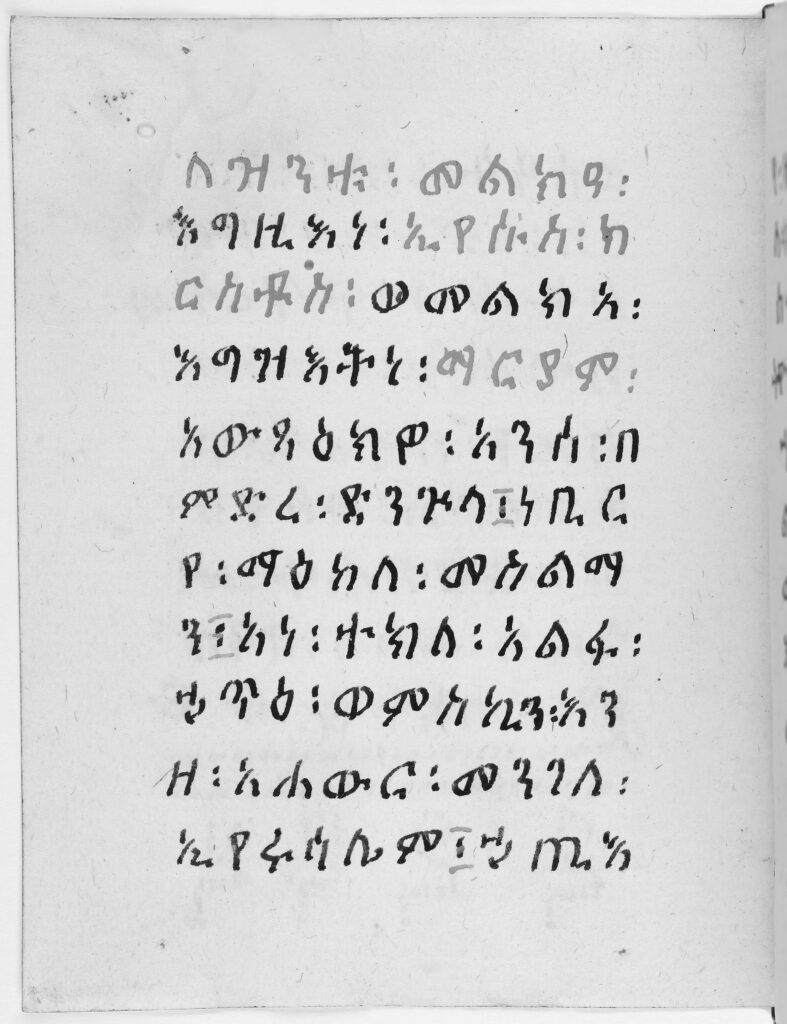 ለዝንቱ፡መልክዓ፡
እግዚእነ፡ኢየሱስ፡ክ
ርስቶስ፡ወመልክአ፡
እግዝእትነ፡ማርያም፡
አውዳዕክዎ፡አንሰ፡በ
ምድረ፡ድንጕላ፤ነቢር
የ፡ማዕከለ፡መስልማ
ን፤አነ፡ተክለ፡አልፋ፡
ሟጥዕ፡ወምስኪን፡እን
ዘ፡አሐውር፡መንገለ፡
ኢየሩሳሌም፤